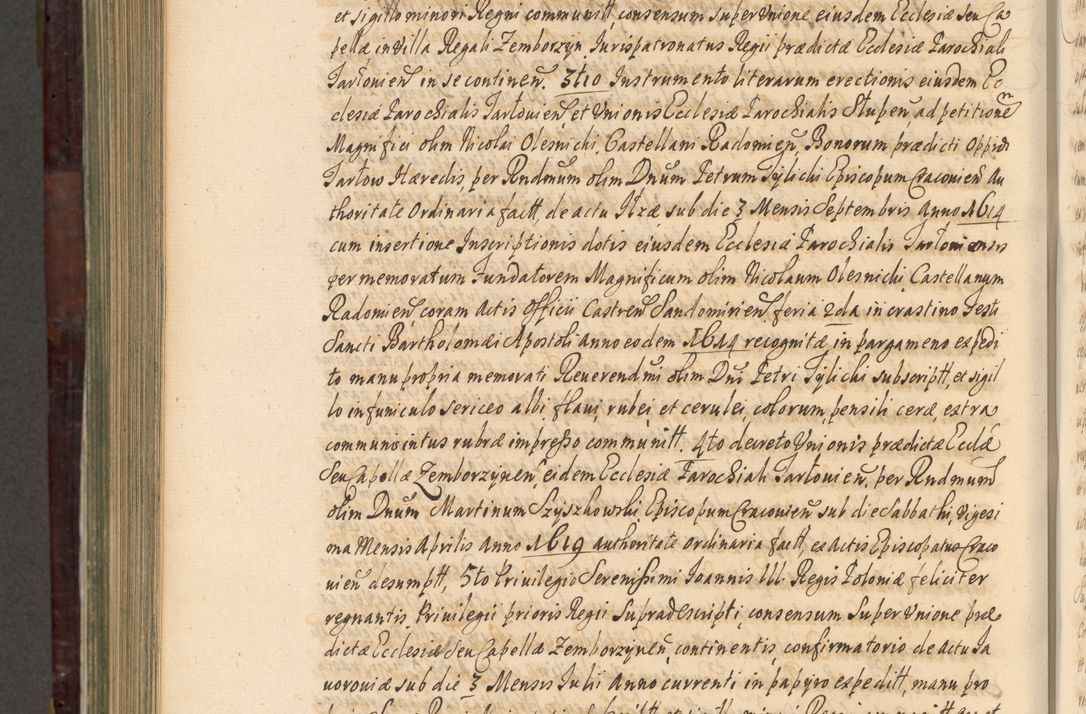 et sigillo minori Regni communitt consensum super Unione eiusdem Ecclesiæ seu Ca
pellæ in Villa Regali Zemborzyn Jurispatronatus Regii prædictæ Ecclesiæ Parochiali
Tarłovien in se continen. 3tio Instrumento literarum erectionis eiusdem Ec
clesiæ Parochialis Tarłovien, et Unionis Ecclesiæ Parochialis Słupen, ad petitionem
Magnifici olim Nicolai Olesnicki, Castellani Radomien, Bonorum prædicti Oppidi
Tarłow Hæredis per Rndmum olim Dnum Petrum Tylicki Episcopum Cracovien Au
thoritate Ordinaria factt, de actu Ilzæ sub die 3 Mensis Septembris Anno 1614
cum insertione Inscriptionis dotis eiusdem Ecclesiæ Parochialis Tarłoviensis
per memoratum Fundatorem Magnificum olim Nicolaum Olesnicki, Castellanum
Radomien, coram Actis Officii Castren Sandomirien, feria 2da in crastino Festi
Sancti Bartholomæi Apostoli anno eodem 1614 recognitæ, in pargameno expedi
to manu propria memorati Reverendmi olim Dni Petri Tylicki subscriptt, et sigil
lo in funiculo sericeo albi, flavi, rubei, et cerulei, colorum, pensili ceræ, extra
communis intus rubræ impresso communitt. 4to decreto Unionis prædictæ Ecclæ
Seu Capellæ Zemborzynen, eidem Ecclesiæ Parochiali Tarłovien, per Rndmum
olim Dnum Martinum Szyszkowski Episcopum Cracovien sub die Sabbathi, Vigesi
ma Mensis Aprilis Anno 1619 authoritate ordinaria factt, ex Actis Episcopatus Craco
vien desumptt, 5to Privilegio Serenissimi Ioannis III. Regis Poloniæ feliciter
regnantis Privilegii prioris Regii Supradescripti, consensum Super Unione præ
dictæ Ecclesiæ Seu Capellæ Zemborzynen, continentis, confirmatorio de actu Ja
voroviæ sub die 3 Mensis Julii Anno currenti in papyro expeditt, manu pro